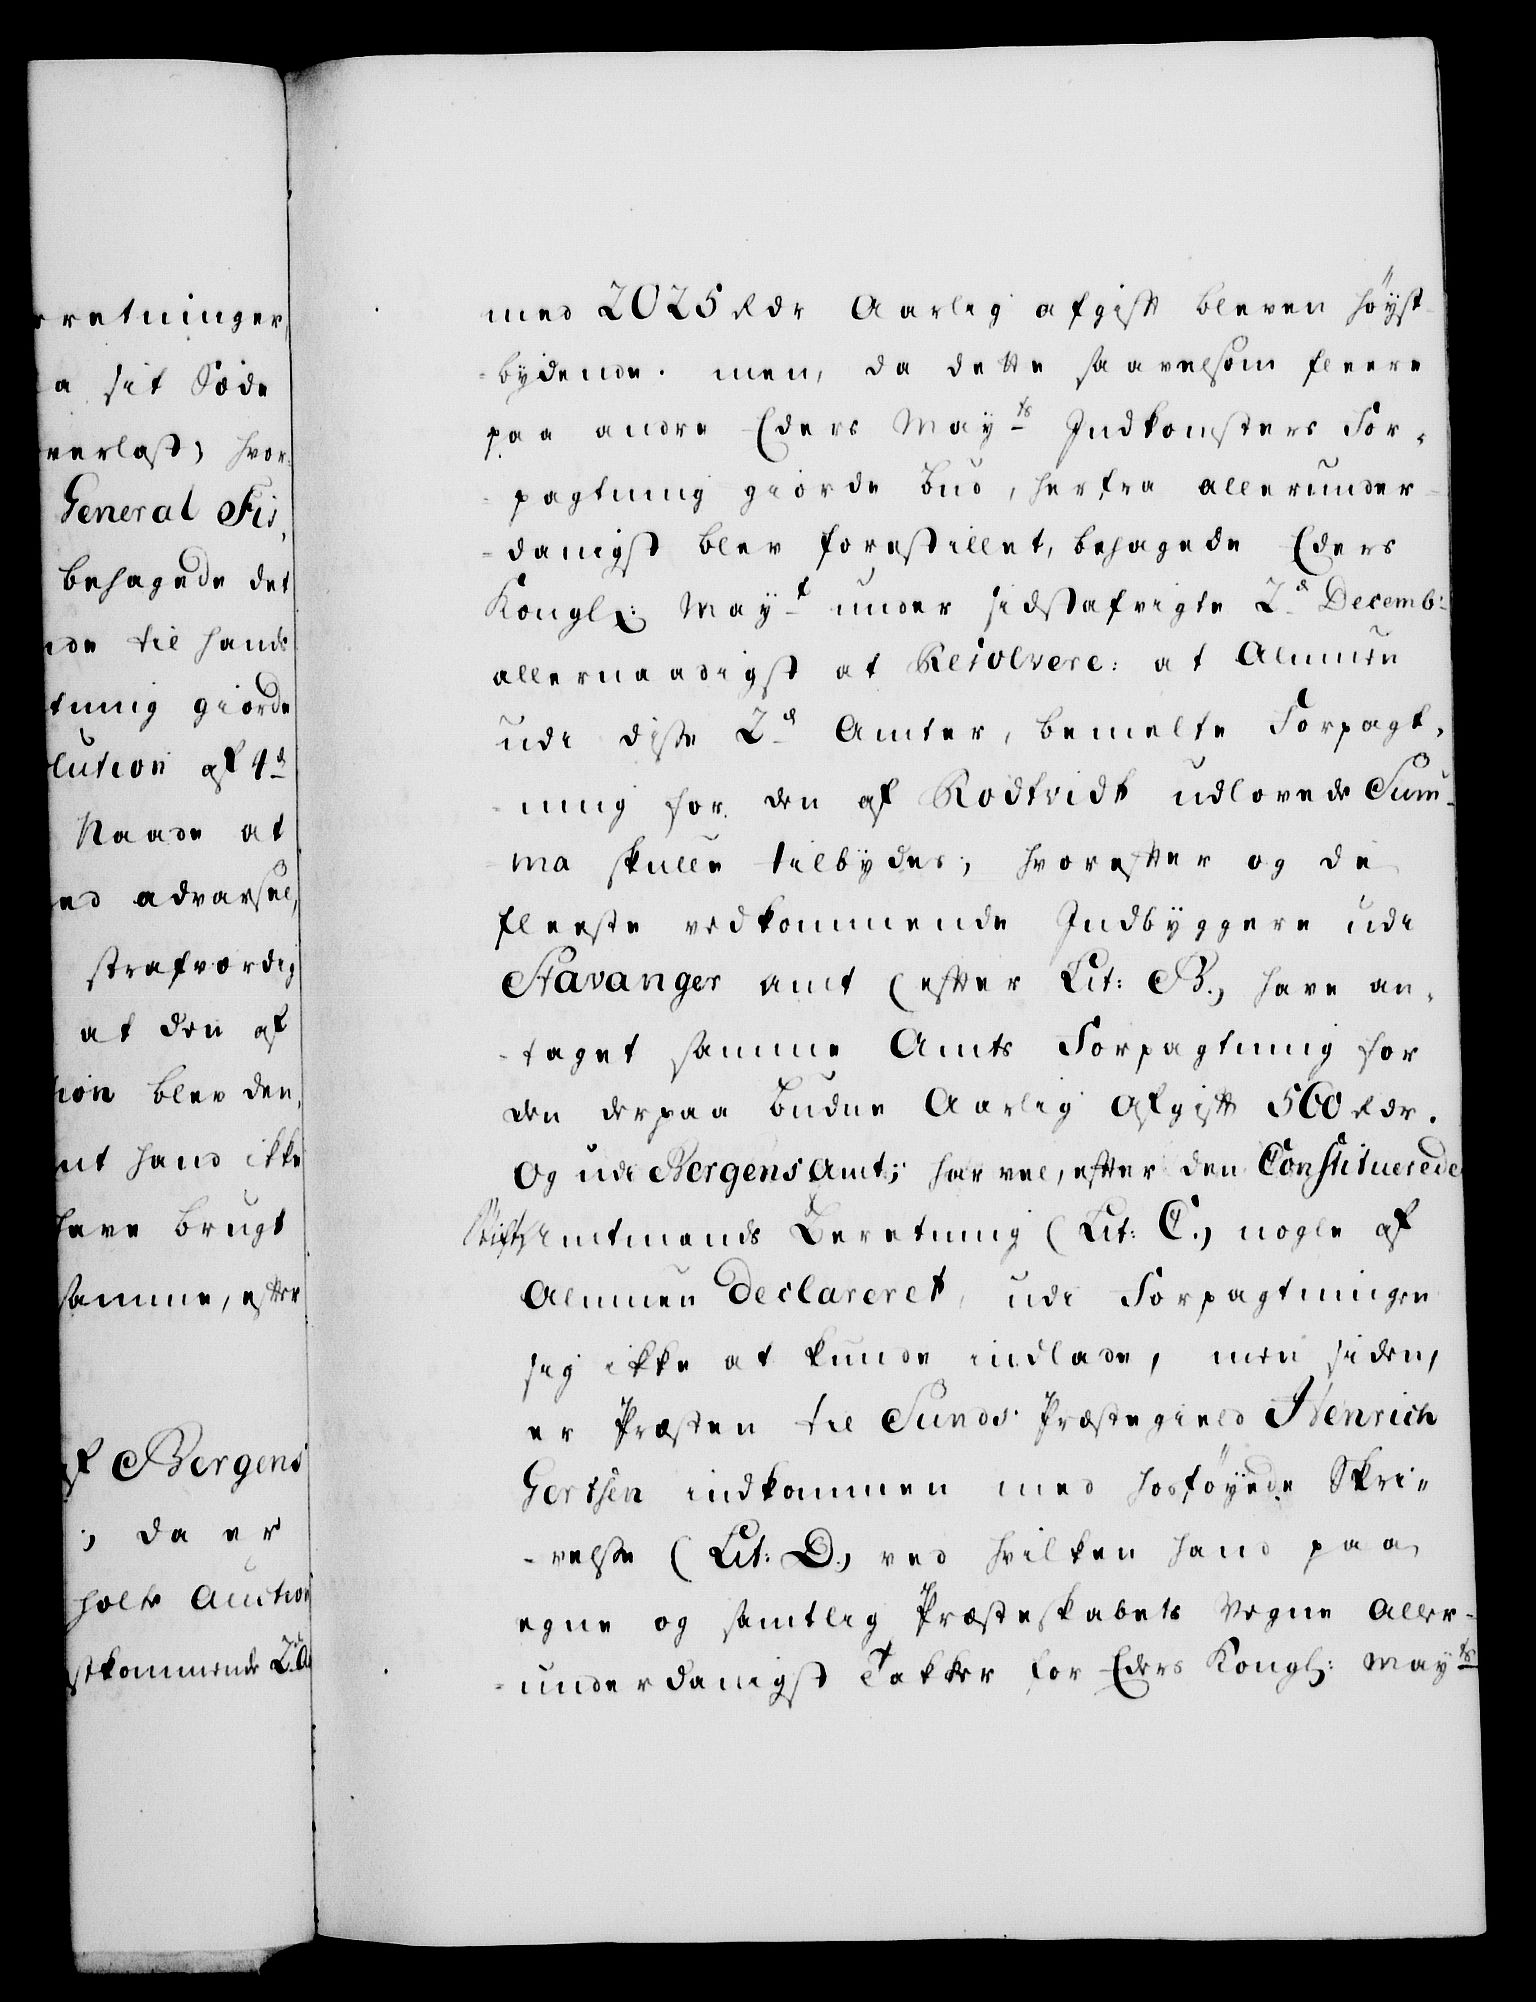 rretninger,
a sit Sæde
verlast) hvor-
General Fis,
behagede det
nde til hands
tning giorde
lution af 4d
Naade at
ed advarsel,
strafværdig
at den af
tion blev den,
nt hand ikke
have brugt
samme, efter
af Bergens
; da er
holte Auction
stkommende 2de A
med 2025 Rdr Aarlig afgift bleven høyst-
-bydende. men, da dette saavelsom fleere
paa andre Eders Mayts Indkomsters For-
-pagtning giorde bud, herfra allerunder-
-danigst blev forestillet, behagede Eders
Kongl: Mayt under sidstafvigte 2d Decemb:
allernaadigst at Resolvere: at Almuen
udi disse 2de Amter, bemelte Forpagt-
-ning for den af Rodtvidt udlovede Sum-
-ma skulle tilbydes; hvorefter og de
fleeste vedkommende Indbyggere udi
Stavanger amt (efter Lit: B.) have an-
-taget samme Amts Forpagtning for
den derpaa budne Aarlig Afgift 560 Rdr.
Og udi Bergens Amt; har vel, efter den Constituerede
Stifts Amtmands Beretning (Lit: C.) nogle af
Almuen declareret, udi Forpagtningen
sig ikke at kunde indlade, men siden,
er Præsten til Sunds Præstegield Henrich
Gertsen indkommen med hosføyede Skri-
-velse (Lit: D.) ved hvilken hand paa
egne og samtlig Præsteskabets Vegne Aller-
-underdanigst Takker for Eders Kongl: Mayts